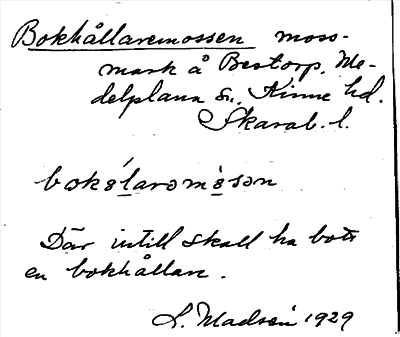 Bokhållaremossen moss-
mark å Bestorp, Me-
delplana sn, Kinne hd.
Skarab. l.
bokɷ́laromɷ̀sən
Där intill skall ha bott
en bokhållare.
L. Madsén 1929